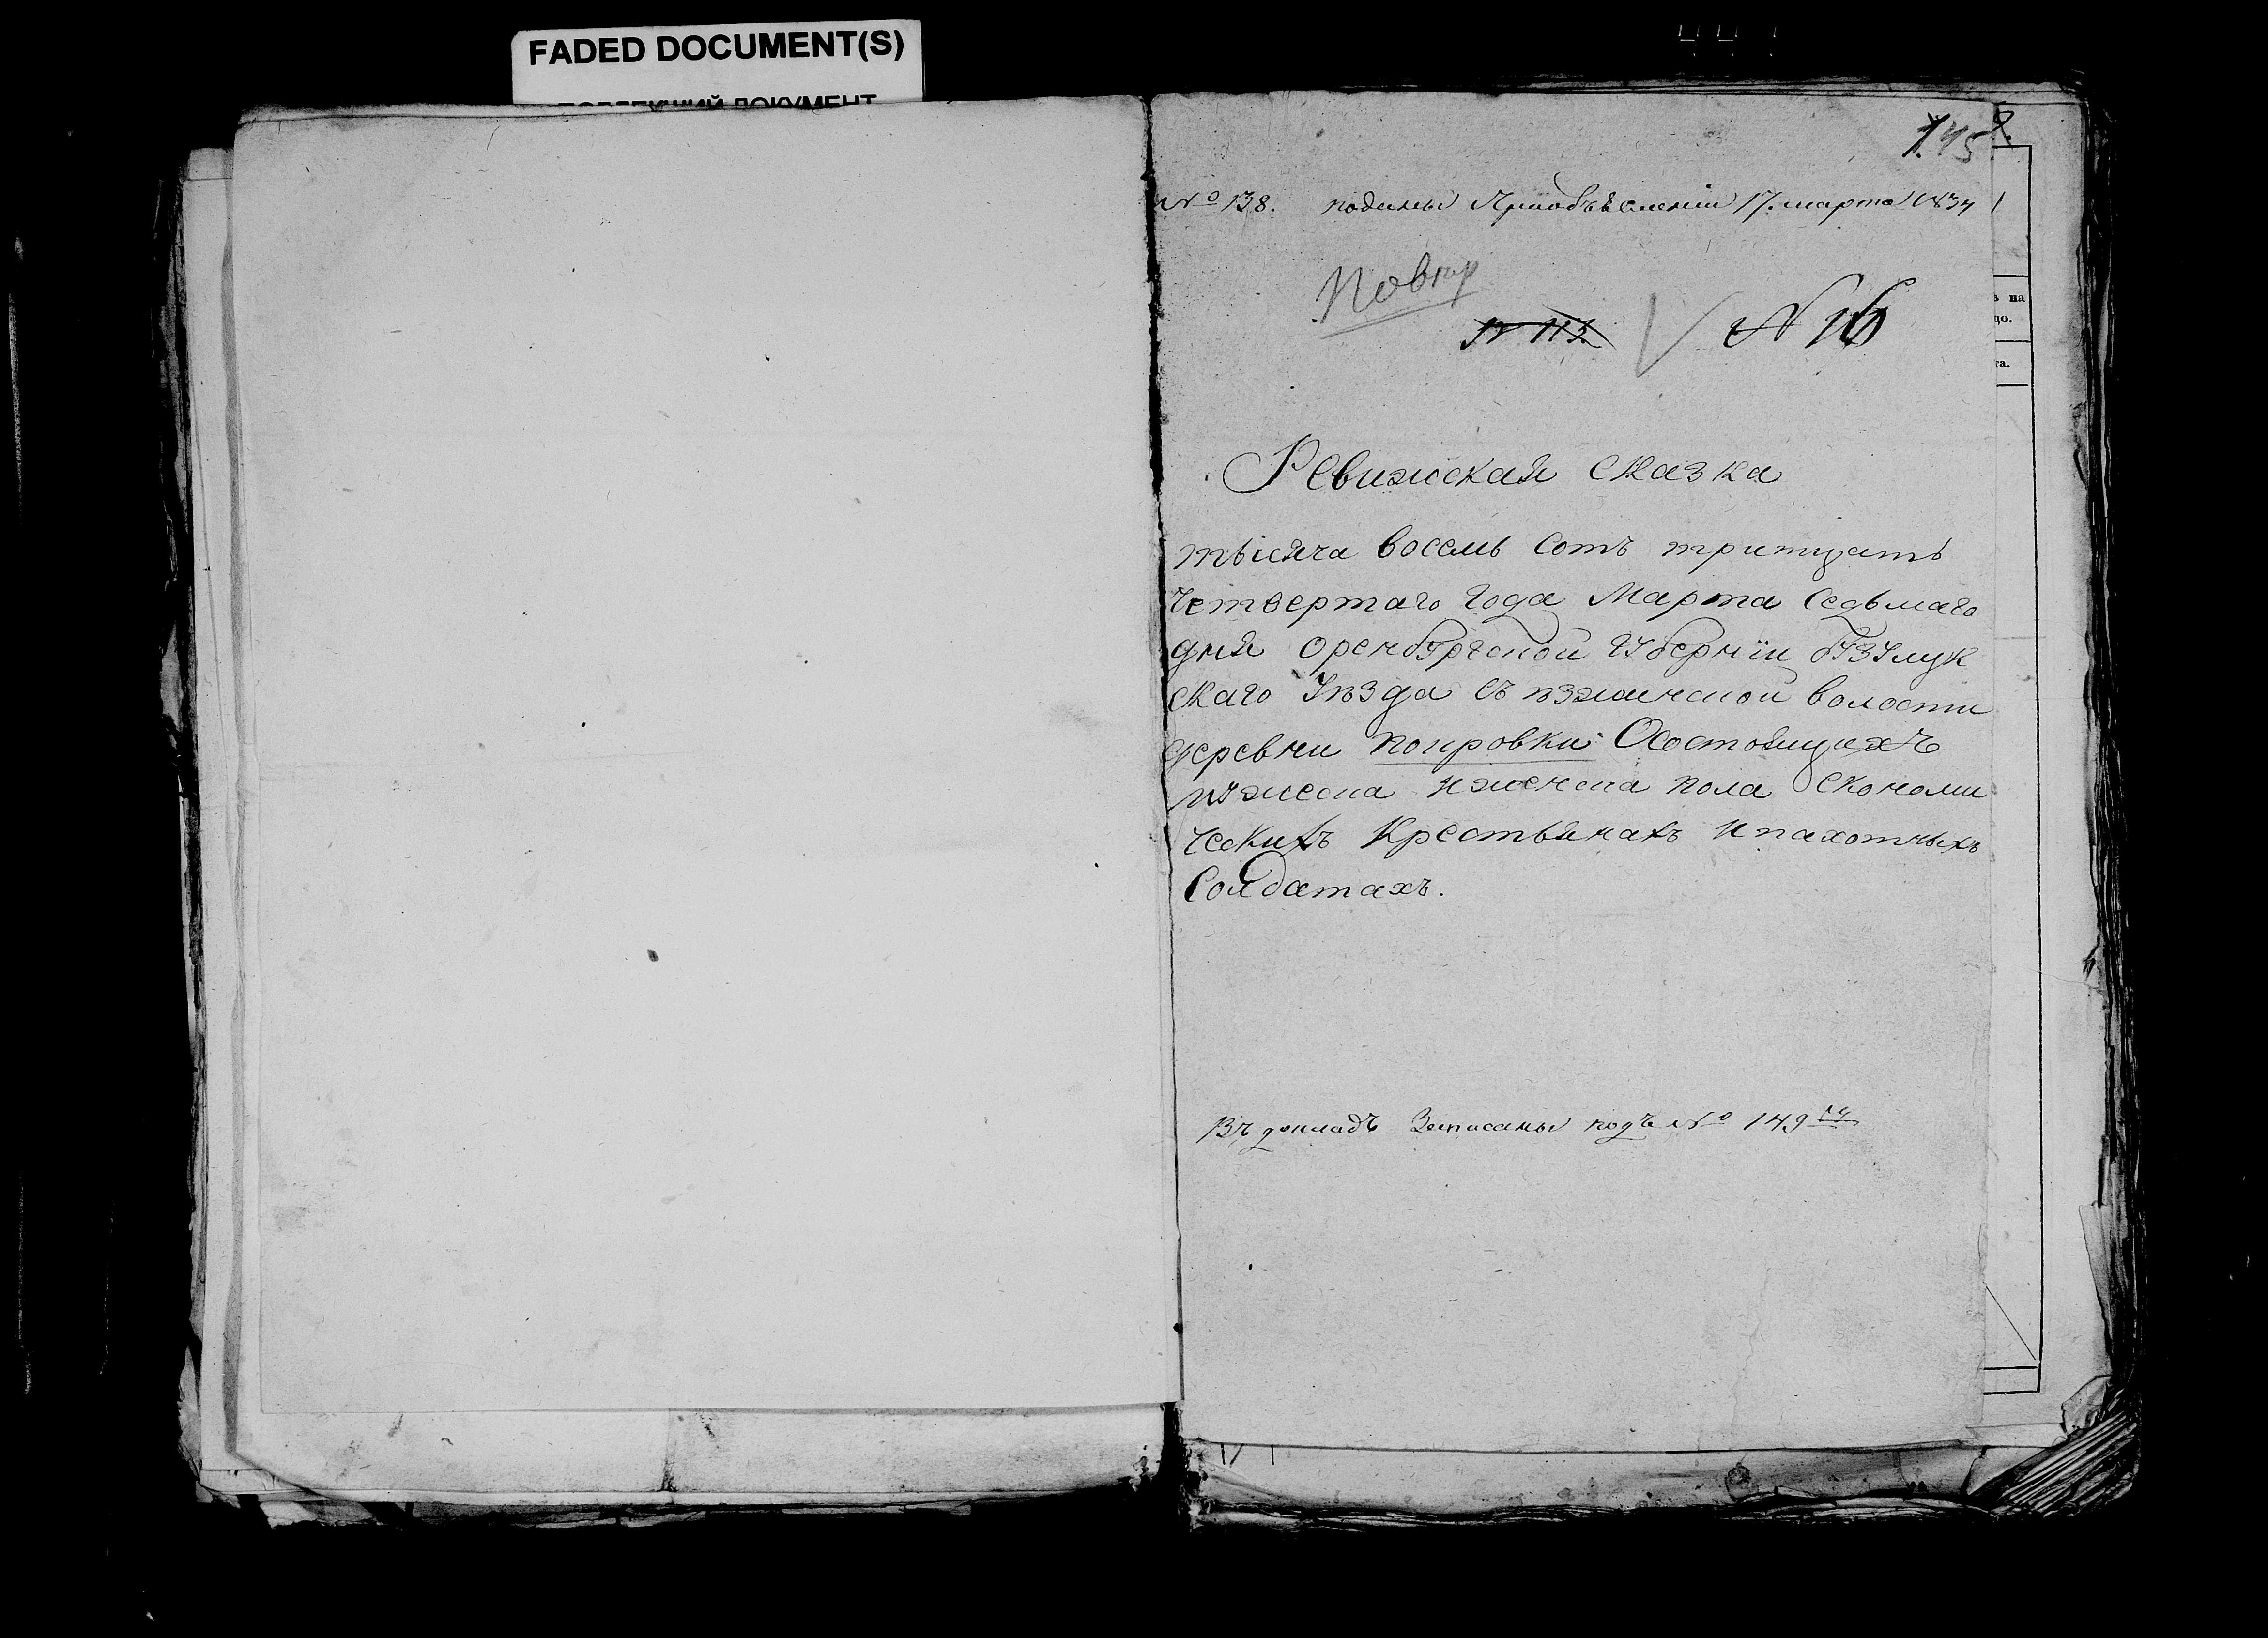 FADED DOCUMENT(S)
145
№ 138. поданы Приобъевленіи 17. марта 1834
Повтр
N 113. N 16
Ревижская сказка
тысяча восемь сотъ тритцать
четвертаго года Марта седьмаго
дня Оренбургской губерніи бузулук
скаго уезда съезжинской волости
деревни покровки Осостоящихъ
мужеска и женска пола економи
ческихъ крестьянахъ и пахотныхъ
солдатахъ.
Въ докладъ Записаны подъ № 149